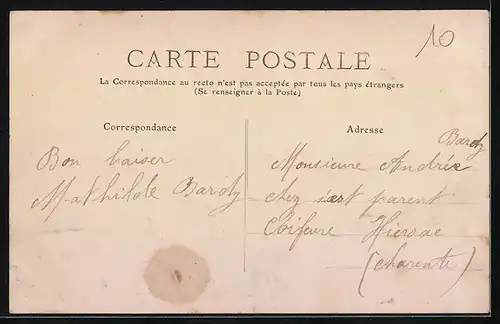 10
CARTE POSTALE
La Correspondance au recto n'est pas acceptée par tous les pays étrangers
(Se renseigner à la Poste)
Correspondance
Adresse
Bon baiser
Mathilde Bardy
Bardy
Monsieure Andrée
chez sest parent
Coifeure Hiersac
(charente)